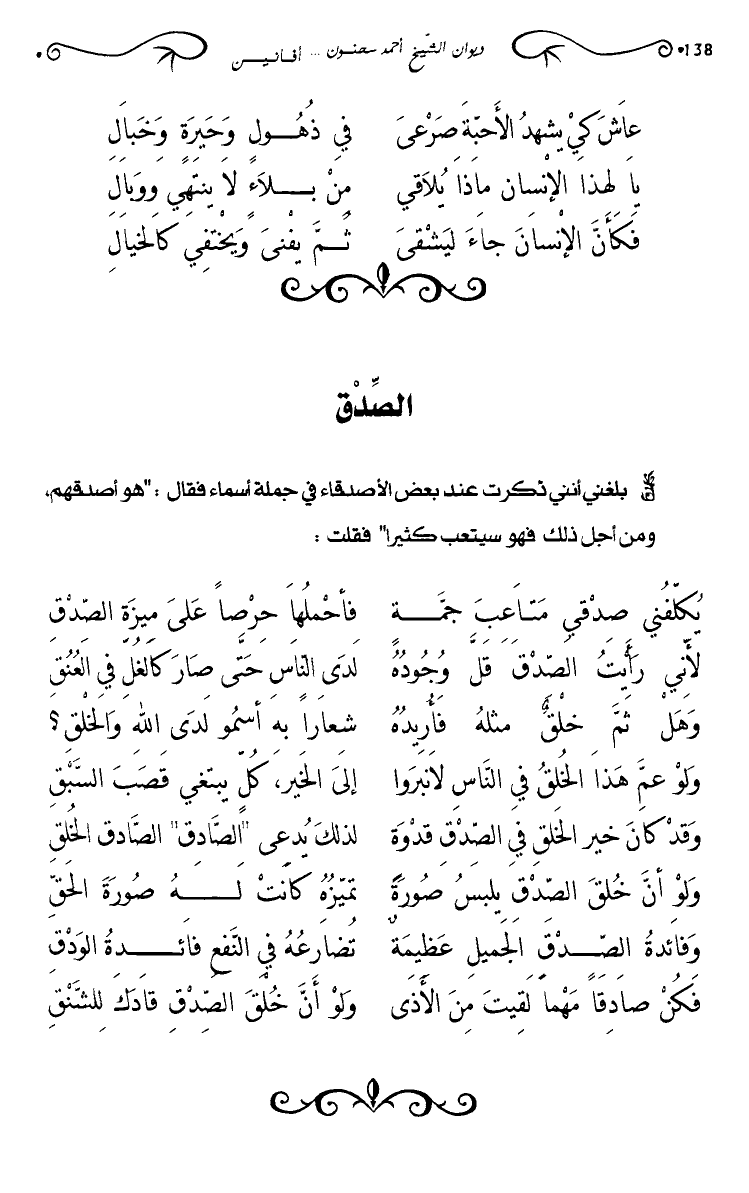 138 ديوان الشيخ أحمد سحنون ... أفانين
عاشَ كيْ يشهدُ الأَحبّة صَرْعى في ذُهُول وَحَيرَةٍ وَخَبالِ
يا لهذا الإنْسان ماذا يُلاَقي مِنْ بلاَءٍ لا ينتهِي ووَبالِ
فكأنَّ الإنْسانَ جاءَ ليَشْقَى ثُمَّ يفْنىَ وَيخْتفِي كالخيالِ
الصِّدْق
بلغني أنني ذكرت عند بعض الأصدقاء في جملة أسماء فقال : "هو أصدقهم،
ومن أجل ذلك فهو سيتعب كثيرا" فقلت :
يُكلّفُني صدْقي مَتاعِبَ جمَّةً فأحْملُها حرْصاً عَلىَ مِيزَةِ الصّدْقِ
لأَنّي رَأَيتُ الصّدْقَ قلَّ وُجُودُهُ لدَى النّاسِ حَتّى صَارَ كالغلِّ في العُنُقِ
وَهَلْ ثَمَّ خلْقٌ مثلهُ فأُريدُهُ شعاراً به أسْمُو لدَى الله وَالخلْقِ؟
ولوْ عمَّ هَذا الخُلقُ في النَّاسِ لانْبرَوا إلىَ الخيرِ، كلٌّ يبْتغي قصَبَ السَّبْقِ
وَقدْ كانَ خير الخلقِ في الصّدْقِ قدْوَةً لذلكَ يُدعى "الصَّادق" الصَّادق الخُلقِ
وَلوْ أنَّ خُلقَ الصّدْقِ يلبسُ صُورَةً تميّزُهُ كانَتْ لهُ صُورَةَ الحقِّ
وَفائدةُ الصّدْقِ الجميل عَظيمَةٌ تُضارعُهُ في النَّفعِ فائدةُ الوَدْقِ
فكُنْ صادِقاً مَهْما لقِيتَ مِنَ الأَذى وَلوْ أنَّ خُلقَ الصّدْقِ قادَكَ للشَّنْقِ